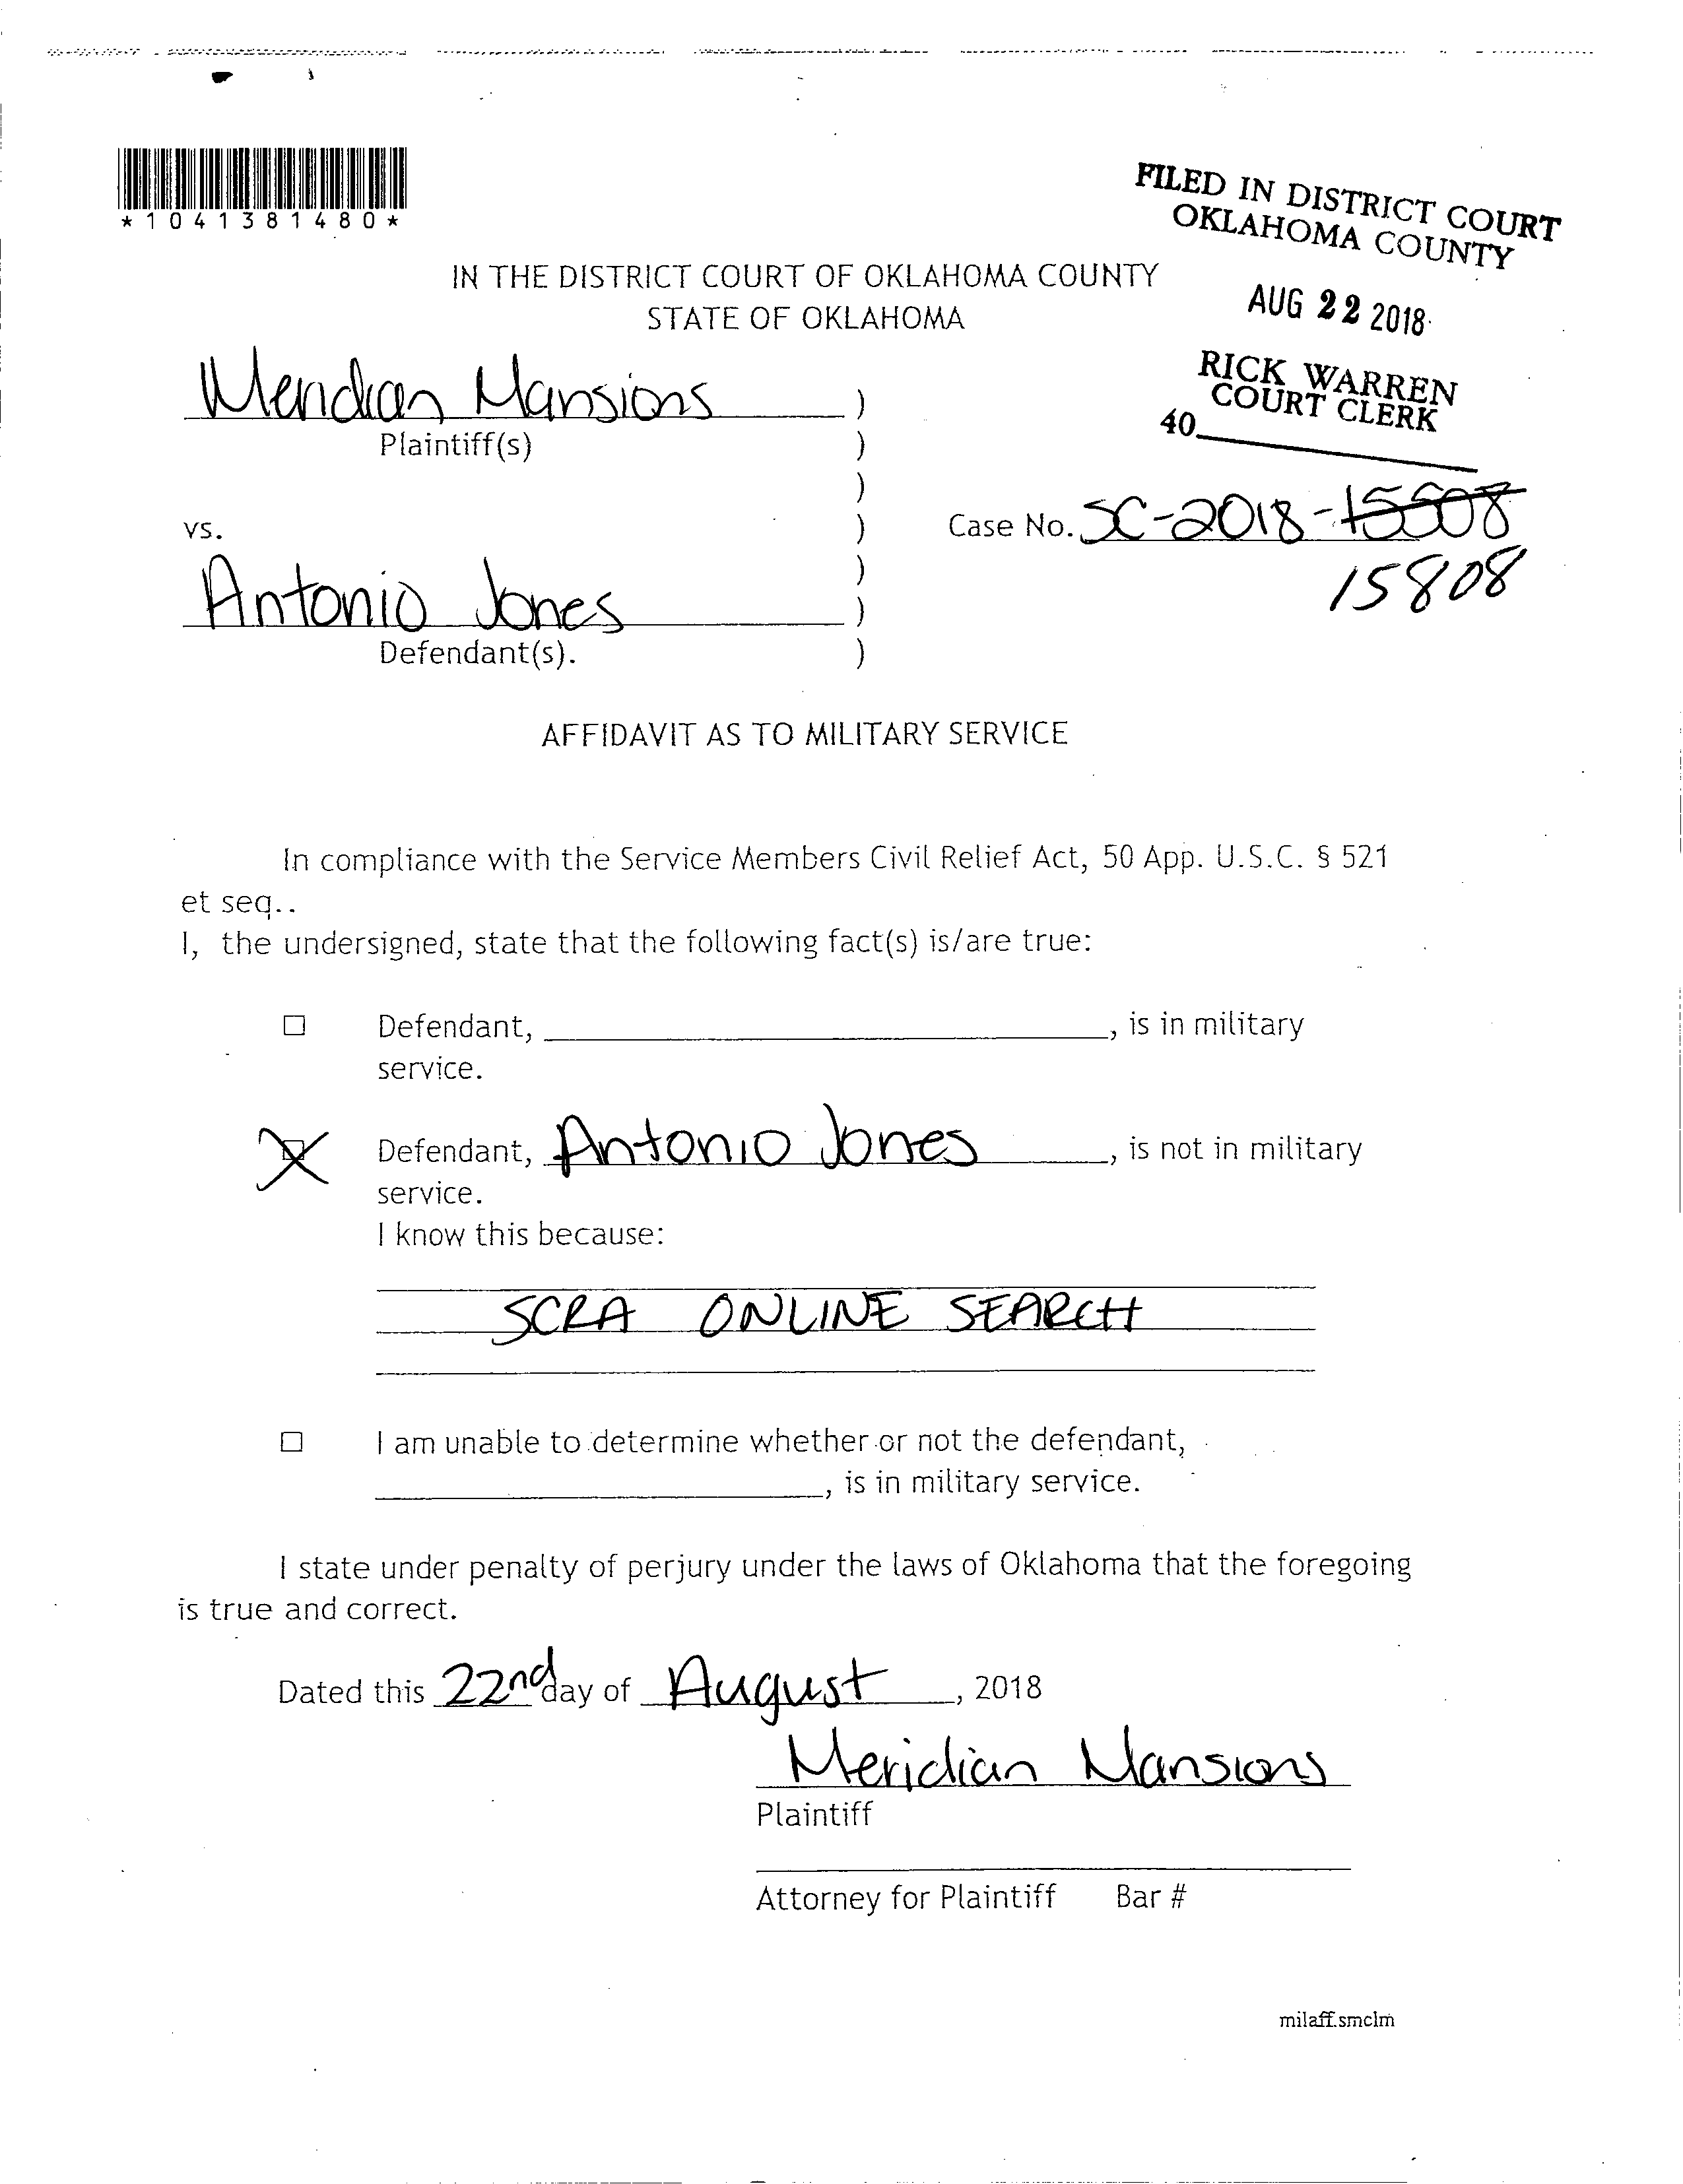 *1041381480*
FILED IN DISTRICT COURT
OKLAHOMA COUNTY
AUG 22 2018
RICK WARREN
COURT CLERK
40
IN THE DISTRICT COURT OF OKLAHOMA COUNTY
STATE OF OKLAHOMA
Meridian Mansions )
Plaintiff(s) )
)
vs. )
Case No. SC-2018-15508
15808
)
Antonio Jones )
Defendant(s). )
AFFIDAVIT AS TO MILITARY SERVICE
In compliance with the Service Members Civil Relief Act, 50 App. U.S.C. § 521
et seq..
I, the undersigned, state that the following fact(s) is/are true:
☐ Defendant, , is in military
service.
☒ Defendant, Antonio Jones , is not in military
service.
I know this because:
SCRA ONLINE SEARCH
☐ I am unable to determine whether or not the defendant,
, is in military service.
I state under penalty of perjury under the laws of Oklahoma that the foregoing
is true and correct.
Dated this 22nd day of August , 2018
Meridian Mansions
Plaintiff
Attorney for Plaintiff Bar #
milaff.smclm